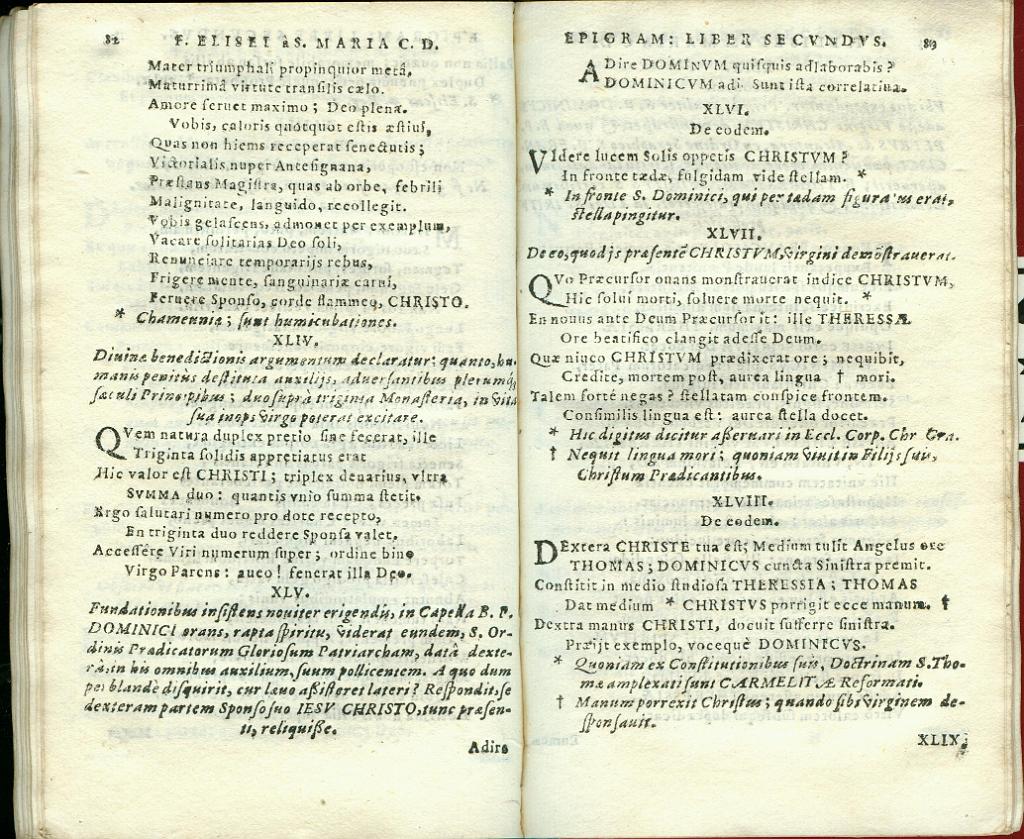 82 F. ELISEI aS. MARIA C. D.
Mater triumphali propinquior metâ,
Maturrima virtute transilis cælo.
Amore feruet maximo; Deo plena.
Vobis, caloris quotquot estis æstiui,
Quas non hiems receperat senectutis;
Victorialis nuper Antesignana,
Præstans Magistra, quas ab orbe, febrili
Malignitate, languido, recollegit.
Vobis gelascens, admonet per exemplum,
Vacare solitarias Deo soli,
Renunciare temporarijs rebus,
Frigere mente, sanguinariæ carni,
Feruere Sponso, corde flammeo, CHRISTO.
* Chameunia; sunt humicubationes.
XLIV.
Diuinæ benedictionis argumentum declaratur: quanto, hu-
manis penitùs destituta auxilijs, aduersantibus plerumq́;
sæculi Principibus; duo suprà triginta Monasteria, in vita
sua inops Virgo poterat excitare.
QVem natura duplex pretio sine fecerat, ille
Triginta solidis appretiatus erat
Hic valor est CHRISTI; triplex denarius, vltra
SVMMA duo: quantis vnio summa stetit.
Ergo salutari numero pro dote recepto,
En triginta duo reddere Sponsa valet,
Accessêre Viri numerum super; ordine bino
Virgo Parens: aueo! fenerat illa Deo.
XLV.
Fundationibus insistens nouiter erigendis, in Capella B. P.
DOMINICI orans, rapta spiritu, viderat eundem, S. Or-
dinis Prædicatorum Gloriosum Patriarcham, datâ dexte-
râ, in his omnibus auxilium, suum pollicentem. A quo dum
per blandè disquirit, cur læuo assisteret lateri? Respondit, se
dexteram partem Sponso suo IESV CHRISTO, tunc præsen-
ti, reliquisse.
Adire
EPIGRAM: LIBER SECVNDVS. 89
ADire DOMINVM quisquis adlaborabis?
DOMINICVM adi. Sunt ista correlatiua.
XLVI.
De eodem.
VIdere lucem Solis oppetis CHRISTVM?
In fronte tædæ, fulgidam vide stellam. *
* In fronte S. Dominici, qui per tædam figuratus erat,
stella pingitur.
XLVII.
De eo, quod js præsentē CHRISTVM, Virgini demōstrauerat.
QVo Præcursor ouans monstrauerat indice CHRISTVM,
Hic solui morti, soluere morte nequit. *
En nouus ante Deum Præcursor it: ille THERESSÆ
Ore beatifico clangit adesse Deum.
Quæ niueo CHRISTVM prædixerat ore; nequibit,
Credite, mortem post, aurea lingua † mori.
Talem fortè negas? stellatam conspice frontem.
Consimilis lingua est: aurea stella docet.
* Hic digitus dicitur asseruari in Eccl. Corp. Chr Gra.
† Nequit lingua mori; quoniam viuit in Filijs suis,
Christum Prædicantibus.
XLVIII.
De eodem.
DExtera CHRISTE tua est; Medium tulit Angelus ore
THOMAS; DOMINICVS cuncta Sinistra premit.
Constitit in medio studiosa THERESSIA; THOMAS
Dat medium * CHRISTVS porrigit ecce manum. †
Dextra manus CHRISTI, docuit sufferre sinistra.
Præijt exemplo, voceque DOMINICVS.
* Quoniam ex Constitutionibus suis, Doctrinam S. Tho-
mæ amplexati sunt CARMELITÆ Reformati.
† Manum porrexit Christus; quando sibi Virginem de-
sponsauit.
XLIX.